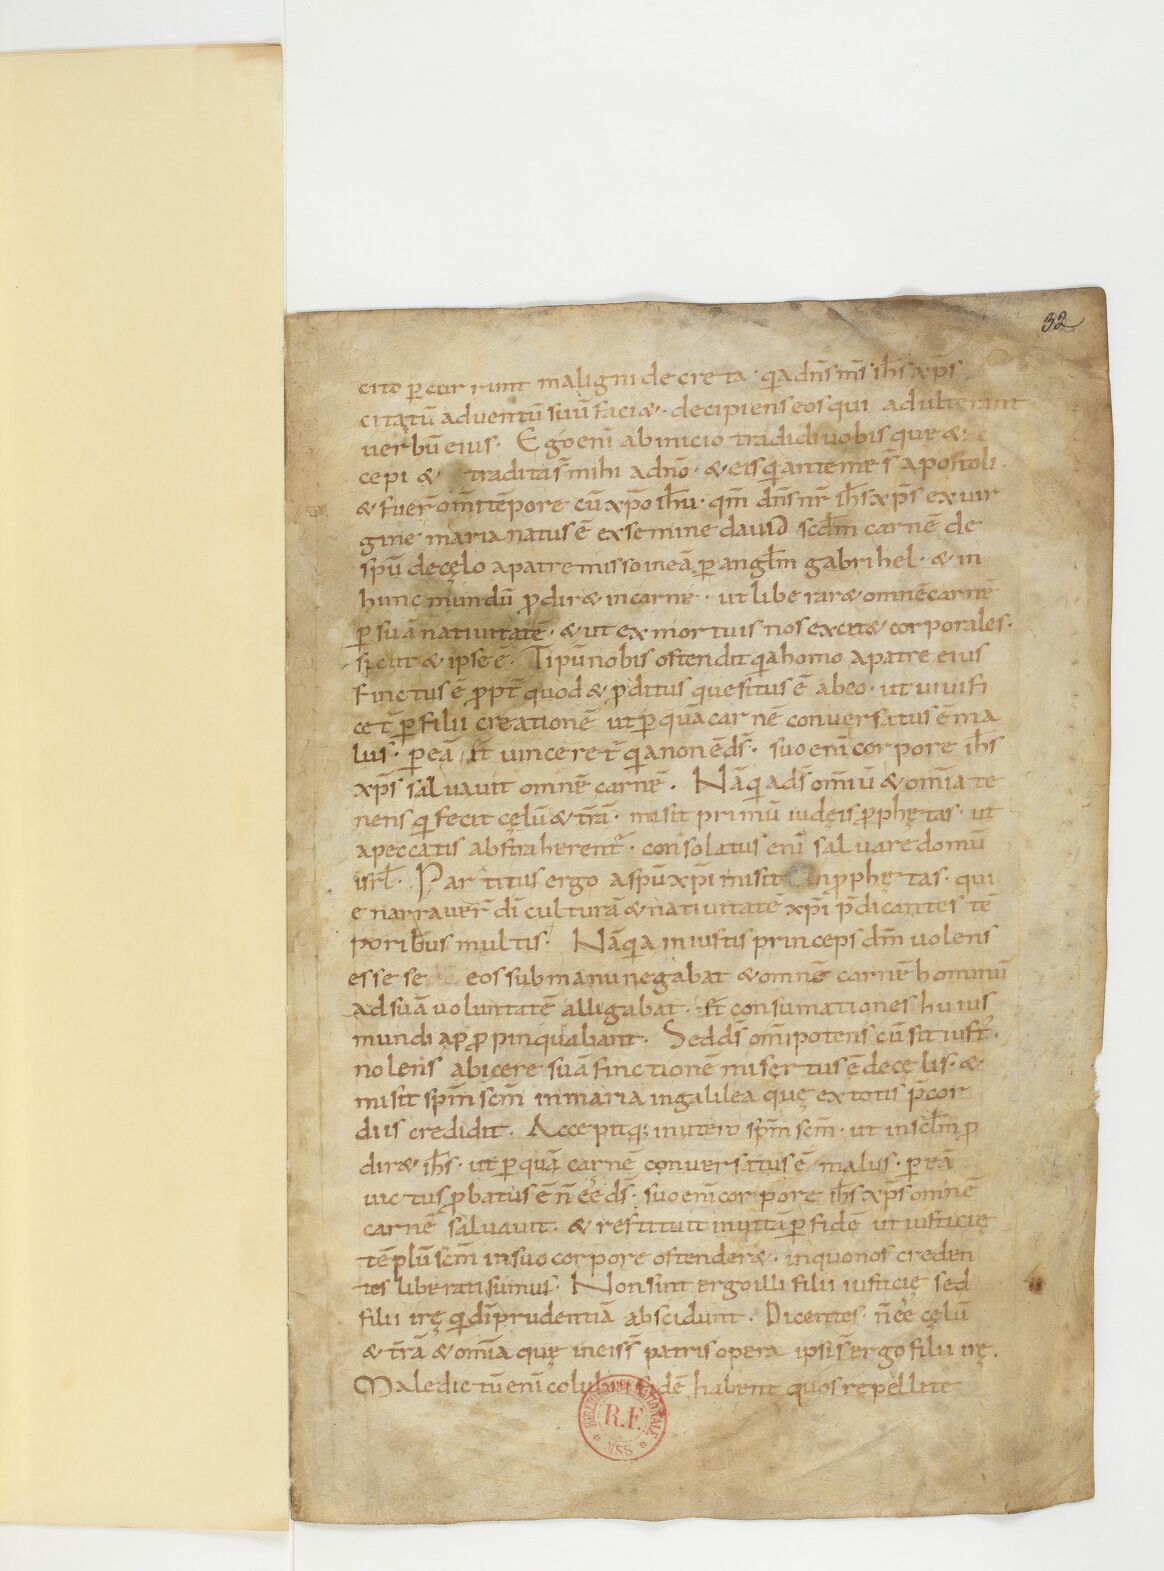 32
cito ꝑcurrunt maligni decreta · qia dn̄s nr̄s ih̄s xp̄s
citatū adventū suū faci& · decipiens eos qui adulterant
verbū eius · Ego enī ab inicio tradidi vobis que &
cepi & tradita s̄ mihi a dn̄o · & eis qi ante me s̄ apostoli ·
& fuer̄ om̄i tēpore cū xp̄o ih̄u · qm̄ dn̄s nr̄ ih̄s xp̄s ex vir
gine maria natus ē ex semine david scd̄m carnē de
spū de cęlo a patre misso in eā ꝑ angl̄m gabrihel · & in
hunc mundū prodir& in carne · ut liberar& omnē carnē
ꝑ suā nativitatē · & ut ex mortuis nos excit& corporales ·
sicut & ipse ē · Tipū nobis ostendit qia homo a patre eius
finctus ē propt̄ quod & ꝑditus quesitus ē ab eo · ut vivifi
cet̄ ꝑ filii creationē ut ꝑ quā carnē conversatus ē ma
lus · ꝑ eā vinceret̄ qia non ē ds̄ · suo enī corpore ih̄s
xp̄s salvavit omnē carnē · Nā qia ds̄ omīū & omīa te
nens qi fecit cęlū & tr̄ā · misit primū iudęis prophętas · ut
a peccatis abstraherent̄ · consolatus enī salvare domū
isrl̄ · Partitus ergo a spū xp̄i misit in prophętas · qui
enarraver̄ di culturā & nativitatē xp̄i p̄dicantes tē
poribus multis · Nā qia iniustis princeps dm̄ volens
esse se eos sub manu negabat & omnē carnē hominū
ad suā voluntatē alligabat · Et consumationes huius
mundi appropinquabant · Sed ds̄ omīpotens cū sit iust᷒ ·
nolens abicere suā finctionē misertus ē de cęlis · &
misit spm̄ scm̄ in maria in galilea quę ex totis p̄cor
diis credidit · Accepitq; in utero spm̄ scm̄ · ut in scl̄m pro
dir& ih̄s · ut ꝑ quā carnē conversatus ē malus · ꝑ eā
victus probatus ē n̄ eē ds̄ · suo enī corpore ih̄s xp̄s omnē
carnē salvavit · & restituit in vitā ꝑ fidē ut iusticię
tēplū scm̄ in suo corpore ostender& · in quo nos creden
tes liberati sumus · Non sint ergo illi filii iusticię sed
filii irę qi di prudentiā abscidunt · Dicentes · n̄ eē cęlū
& tr̄ā & omīa quę in eis s̄ patris opera ipsi s̄ ergo filii irę ·
Maledictū enī colubri fidē habent quos repellite
BIBLIOTHÈQUE NATIONALE
R.F.
MSS